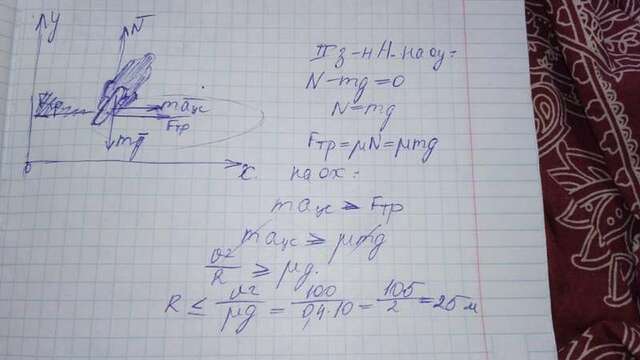 y
N
maцс
Fтр
mg
0
x
II з-н Н. на оy:
N-mg=0
N=mg
Fтр=μN=μmg
на ох:
maцс ≥ Fтр
maцс ≥ μmg
v²/R ≥ μg.
R ≤ v²/μg = 100/0,4·10 = 105/2 = 25 м